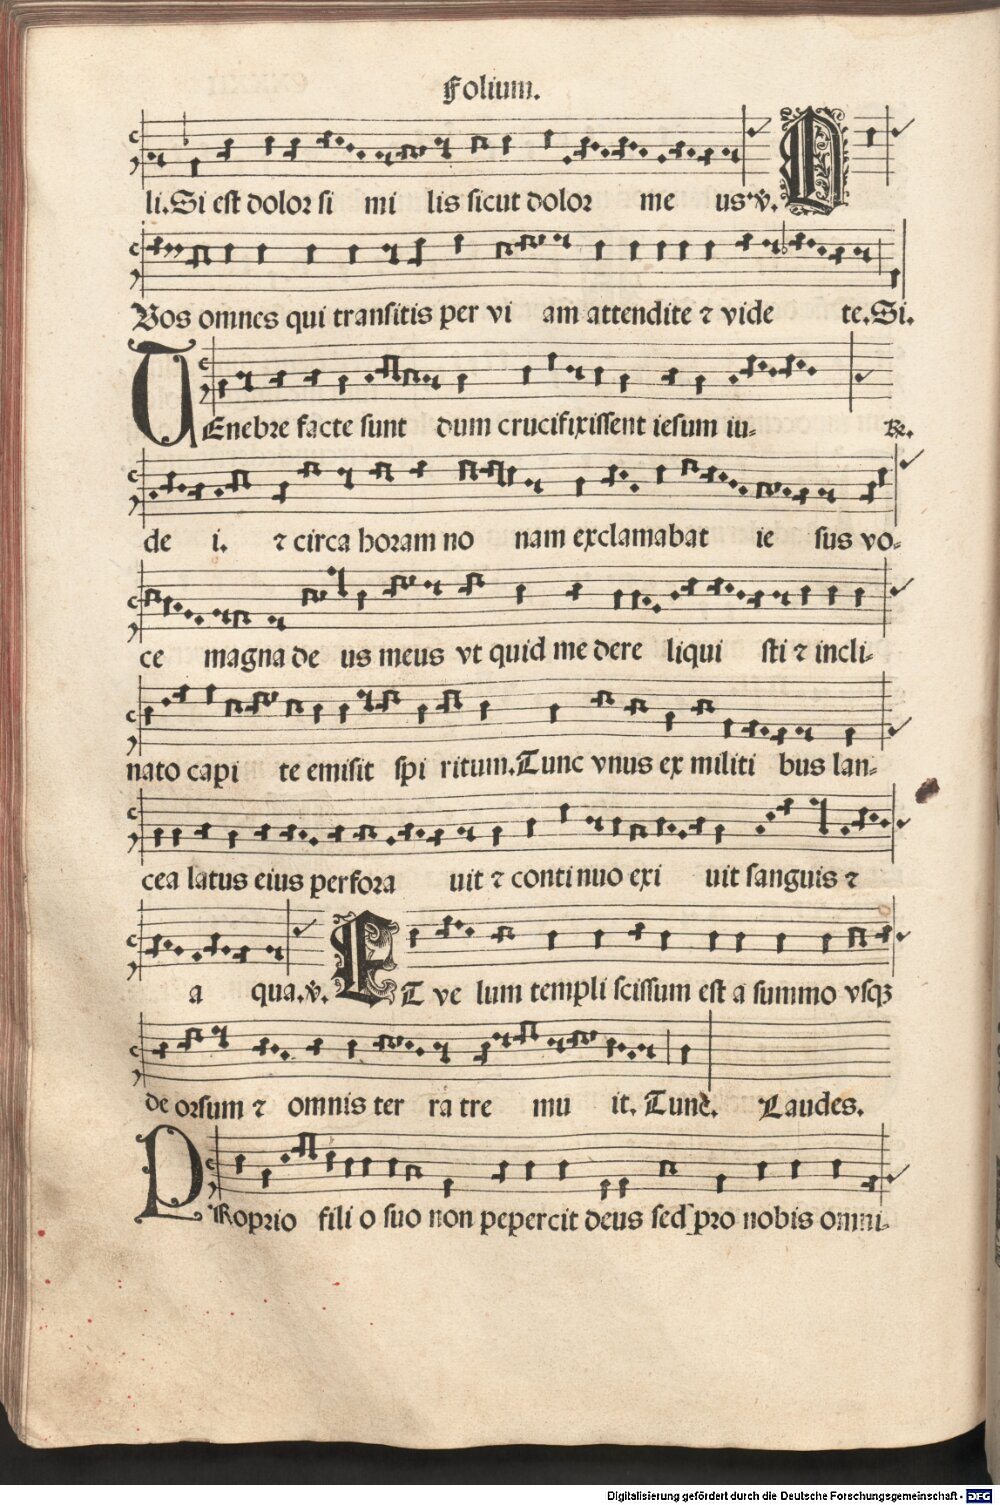 Folium.
li. Si est dolor si mi lis sicut dolor me us. ꝟ. O
Vos omnes qui transitis per vi am attendite ⁊ vide te. Si.
TEnebre facte sunt dum crucifixissent iesum iu- ℟.
de i. ⁊ circa horam no nam exclamabat ie sus vo-
ce magna de us meus vt quid me dere liqui sti ⁊ incli-
nato capi te emisit spi ritum. Tunc vnus ex militi bus lan-
cea latus eius perfora uit ⁊ conti nuo exi uit sanguis ⁊
a qua. ꝟ. ET ve lum templi scissum est a summo vsqꝫ
de orsum ⁊ omnis ter ra tre mu it. Tunc. Laudes.
PRoprio fili o suo non pepercit deus sed pro nobis omni-
Digitalisierung gefördert durch die Deutsche Forschungsgemeinschaft - DFG